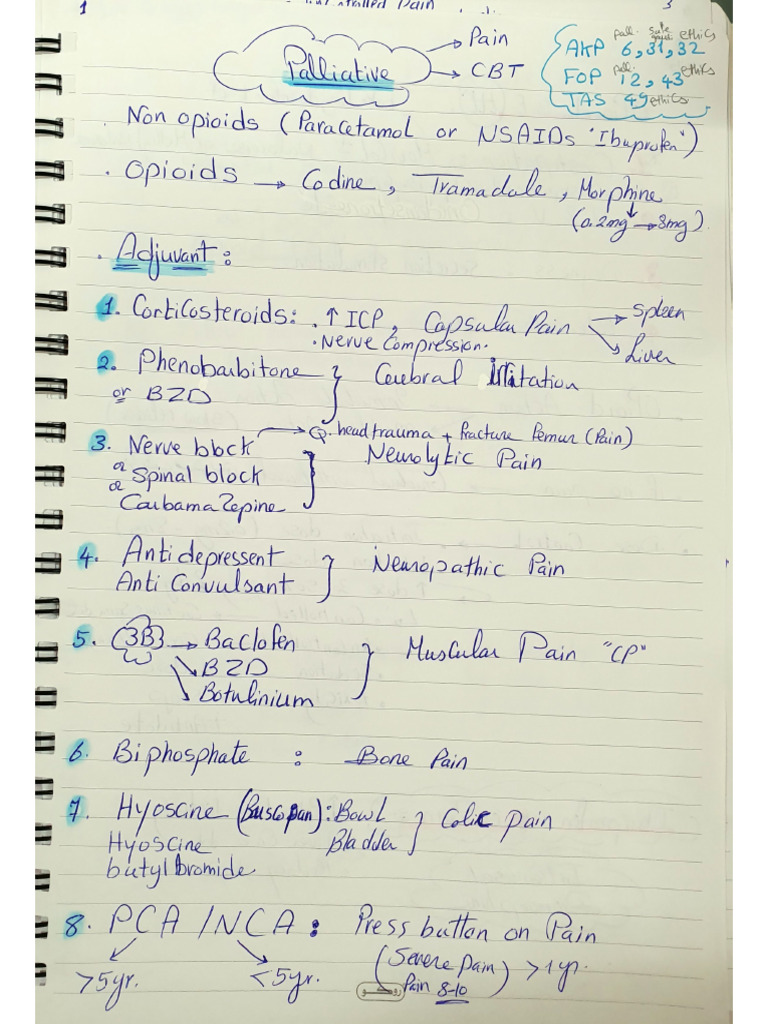 1
Pain
3
Palliative
Pain
CBT
pall. safe guard ethics
AKP 6, 31, 32
pall. ethics
FOP 12, 43
TAS 49 ethics
. Non opioids (Paracetamol or NSAIDs "Ibuprofen")
. Opioids → Codine, Tramadole, Morphine
(0.2mg → 8mg).
. Adjuvant:
1. Corticosteroids: . ↑ ICP, Capsular Pain → Spleen
. Nerve Compression. Liver
2. Phenobarbitone } Cerebral Irritation
or BZD
3. Nerve block → Q. head trauma + fracture Femur (Pain)
or Spinal block } Neurolytic Pain
or Carbamazepine
4. Antidepressent } Neuropathic Pain
Anti Convulsant
5. (3B) → Baclofen } Muscular Pain "CP"
BZD
Botulinium
6. Biphosphate : Bone Pain
7. Hyoscine (Buscopan): Bowl } Colic pain
Hyoscine Bladder
butylbromide
8. PCA / NCA : Press button on Pain
>5yr. <5yr. (Severe pain) >1yr.
Pain 8-10